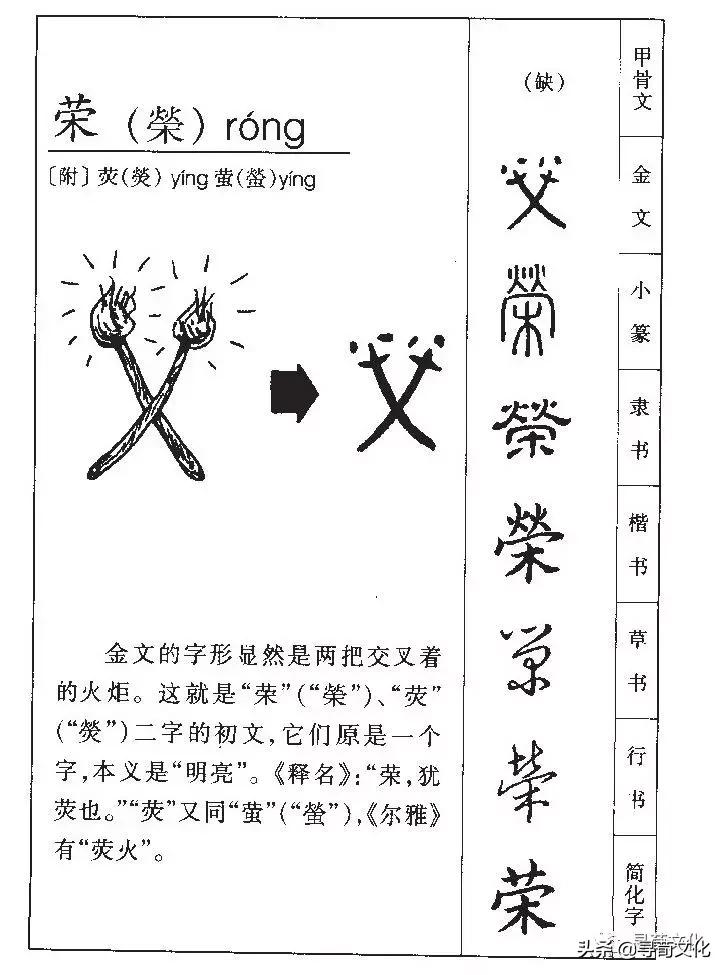 荣（榮）róng
〔附〕荧(熒) yíng 萤(螢)yíng
金文的字形显然是两把交叉着
的火炬。这就是“荣”(“榮”)、“荧”
(“熒”)二字的初文,它们原是一个
字,本义是“明亮”。《释名》:“荣,犹
荧也。”“荧”又同“萤”(“螢”),《尔雅》
有“荧火”。
（缺） 甲骨文
金文
榮 小篆
榮 隶书
榮 楷书
草书
榮 行书
荣 简化字
头条@寻苛文化